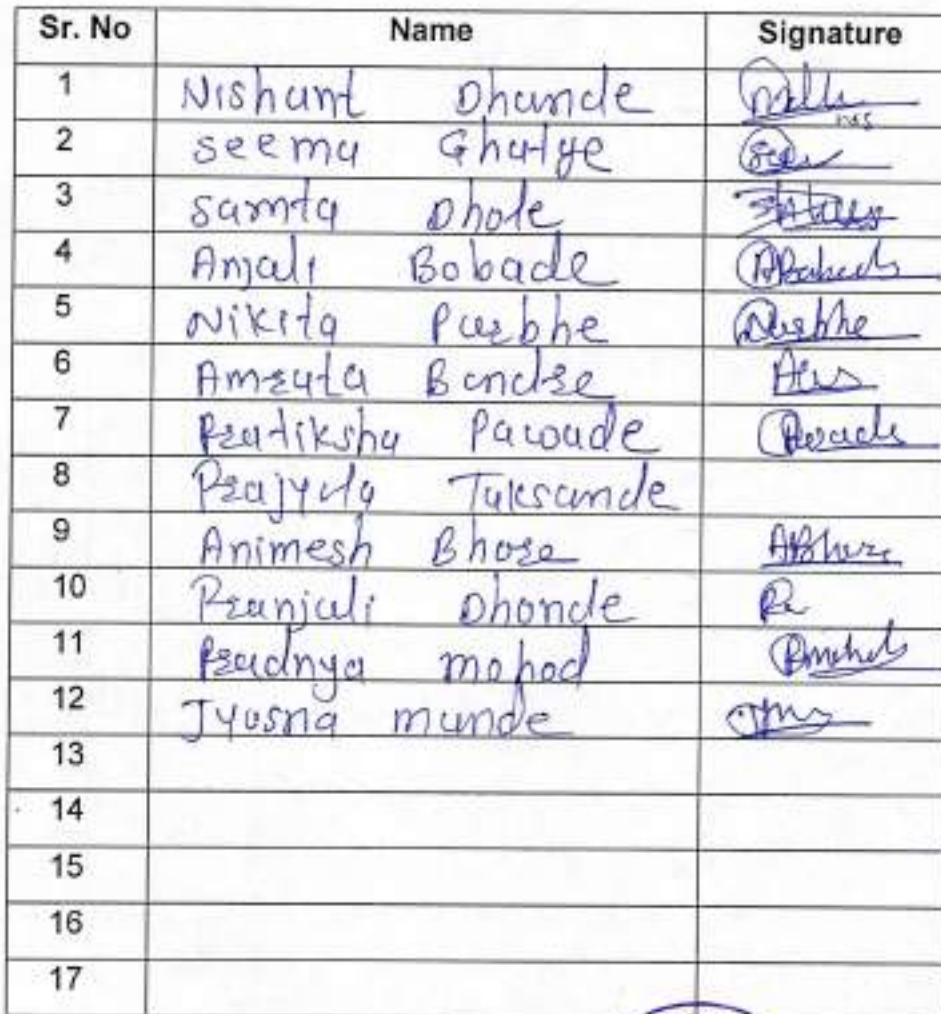 Sr. No Name Signature
1 Nishant Dhande
2 seema Ghatge
3 samta Dhole
4 Anjali Bobade
5 Nikita Purbhe Purbhe
6 Amruta Bendre
7 Pratiksha Pawade
8 Prajyota Taksande
9 Animesh Bhore ABhore
10 Pranjali Dhonde
11 Pradnya mohod Pmohod
12 Jyosna munde
13
14
15
16
17